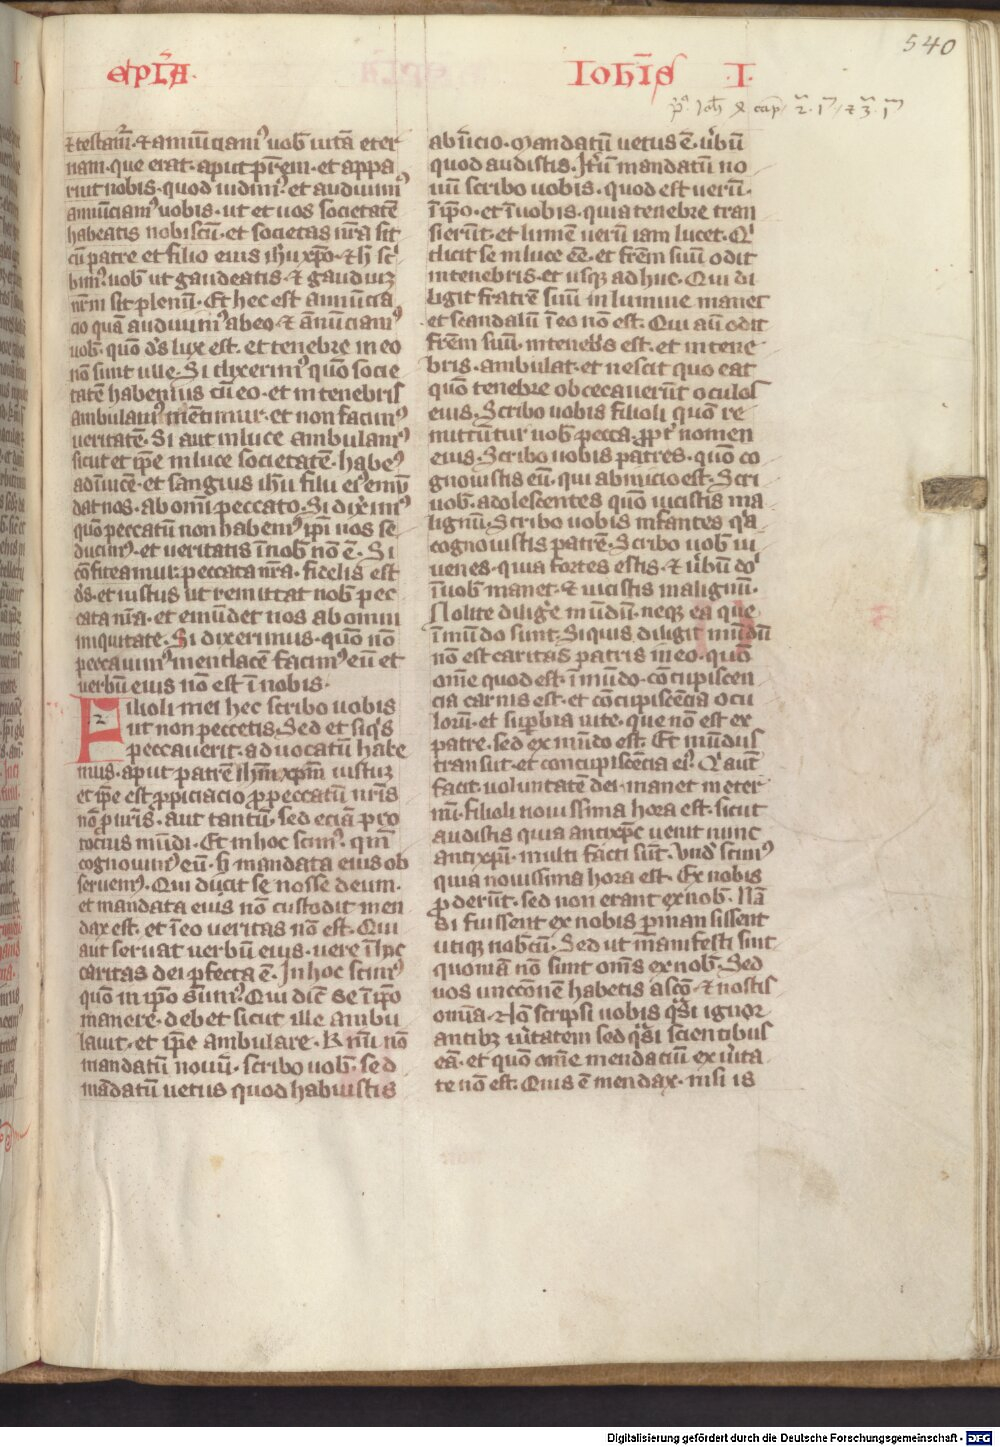 540
ep̄la
Ioħis .I.
⁊ testam̄. ⁊ annūciamꝰ uob̄ uitā eter
nam. que erat. aput pr̄em. et appa
ruit nobis. quod uidimꝰ. et audiuimꝰ
annūciamꝰ uobis. ut et uos societatē
habeatis nobiscū. et societas nr̄a sit
cū patre et filio eius ih̄u xp̄o. ⁊ h̄ scͥ
bimꝰ. uob̄ ut gaudeatis. ⁊ gaudiuꝫ
nr̄m sit plenū. Et hec est annūcia
cio quā audiuimꝰ ab eo. ⁊ ānūciamꝰ
uob̄. quō d̄s lux est. et tenebre in eo
nō sunt ulle. Si dixerimꝰ quō socie
tatē habemus cū eo. et in tenebris
ambulamꝰ mētimur. et non facimꝰ
ueritatē. Si aut in luce ambulamꝰ
sicut et ip̄e in luce societatē. habeꝰ
adīuicē. et sanguis ih̄u filii eiꝰ emū
dat nos. ab om̄i peccato. Si dixeimꝰ
quō peccatū non habemꝰ ip̄i nos se
ducimꝰ. et ueritatis ī nob̄ nō ē. Si
cōfiteamur. peccata nr̄a. fidelis est
d̄s. et iustus ut remittat nob̄ pec
cata nr̄a. et emūdet nos ab omni
iniquitate. Si dixerimus. quō nō
peccauimꝰ mendacē facimꝰ eū et
uerbū eius nō est ī nobis.
2
Filioli mei hec scribo uobis
ut non peccetis. Sed et siqͥs
peccauerit. aduocatū habe
mus. aput patrē ih̄m xp̄m iustuꝫ
et ip̄e est ꝓpiciacio ꝓ peccatū nr̄is
nō ꝓ nr̄is. aut tantū. sed eciā pro
tocius mūdi. Et in hoc scimꝰ. qm̄
cognouimꝰ eū. h̄ mandata eius ob
seruemꝰ. Qui dicit se nosse deum.
et mandata eius nō custodit men
dax est. et ī eo ueritas nō est. Qui
aut seruat uerbū eius. uere ī h̄c
caritas dei ꝑfecta ē. In hoc scimꝰ
quō in ip̄o sumꝰ. Qui dic̄ se ī ip̄o
manere. debet sicut ille ambu
lauit. et ip̄e ambulare. Kr̄mi nō
mandatū nouū. scribo uob̄. sed
mādatū uetus quod habuistis
ab īicio. Mandatū uetus ē. ūbū
quod audistis. It̄ū mandatū no
uū scribo uobis. quod est uerū.
ī ip̄o. et ī uobis. quia tenebre tran
sierūt. et lumē uerū iam lucet. Qͥ
dicit se in luce ēē. et fr̄em suū odit
in tenebris. et usqꝫ adhuc. Qui di
ligit fratrē suū in lumine manet
et scandalū ī eo nō est. Qui aū odit
fr̄em suū. in teneb̄s est. et in tene
bris. ambulat. et nescit quo eat
quō tenebre obcecauerūt oculos
eius. Scribo uobis filioli quō re
mittūtur uob̄ pecca. ꝓpt̄ nomen
eius. Scribo uobis patres. quō co
gnouistis eū. qui ab inicio est. Scri
uob̄. adolescentes quō uicistis ma
lignū. Scribo uobis infantes qͥa
cognouistis patrē. Scribo uob̄ iu
uenes. quia fortes estis. ⁊ ūbū dͦi
ī uob̄ manet. ⁊ uicistis malignū.
Nolite diligͤe mūdū. neqꝫ ea que
ī mūdo sunt. Siquis diligit mūdū
nō est caritas patris in eo. quō
om̄e quod est. ī mūdo. cōcupiscen
cia carnis est. et cōcupiscēcia ocu
lorū. et suꝑbia uite. que nō est ex
patre. sed ex mūdo est. Et mūdus
transiit. et concupiscēcia eiꝰ. Qͥ autē
facit uoluntatē dei. manet in eter
nū. filioli nouissima hora est. sicut
audistis quia antixp̄c uenit nunc
antixp̄i. multi facti sūt. Vnd̄ scimꝰ
quia nouissima hora est. Ex nobis
ꝓderūt. sed non erant ex nob̄. Nā
si fuissent ex nobis ꝑmansissent
utiqꝫ nob̄cū. Sed ut manifesti sint
quoniā nō sunt om̄s ex nob̄. Sed
uos unccōnē habetis a scō. ⁊ nostis
om̄ia. Nō scripsi uobis qͣsi ignor
antibꝫ ūitatem sed qͣsi scientibus
eā. et quō om̄e mendaciū ex ūita
te nō est. Quis ē mendax. nisi is
Digitalisierung gefördert durch die Deutsche Forschungsgemeinschaft - DFG